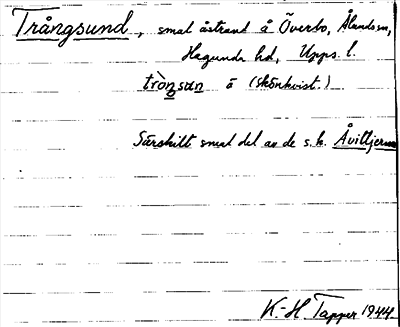 Trångsund, smal åstrand å Överbo, Ålands sn,
Hagunda hd, Upps. l.
tròŋsun ă (Skönkvist.)
Särskilt smal del av de s.k. Åvilljerna
K.-H. Tapper 1944.